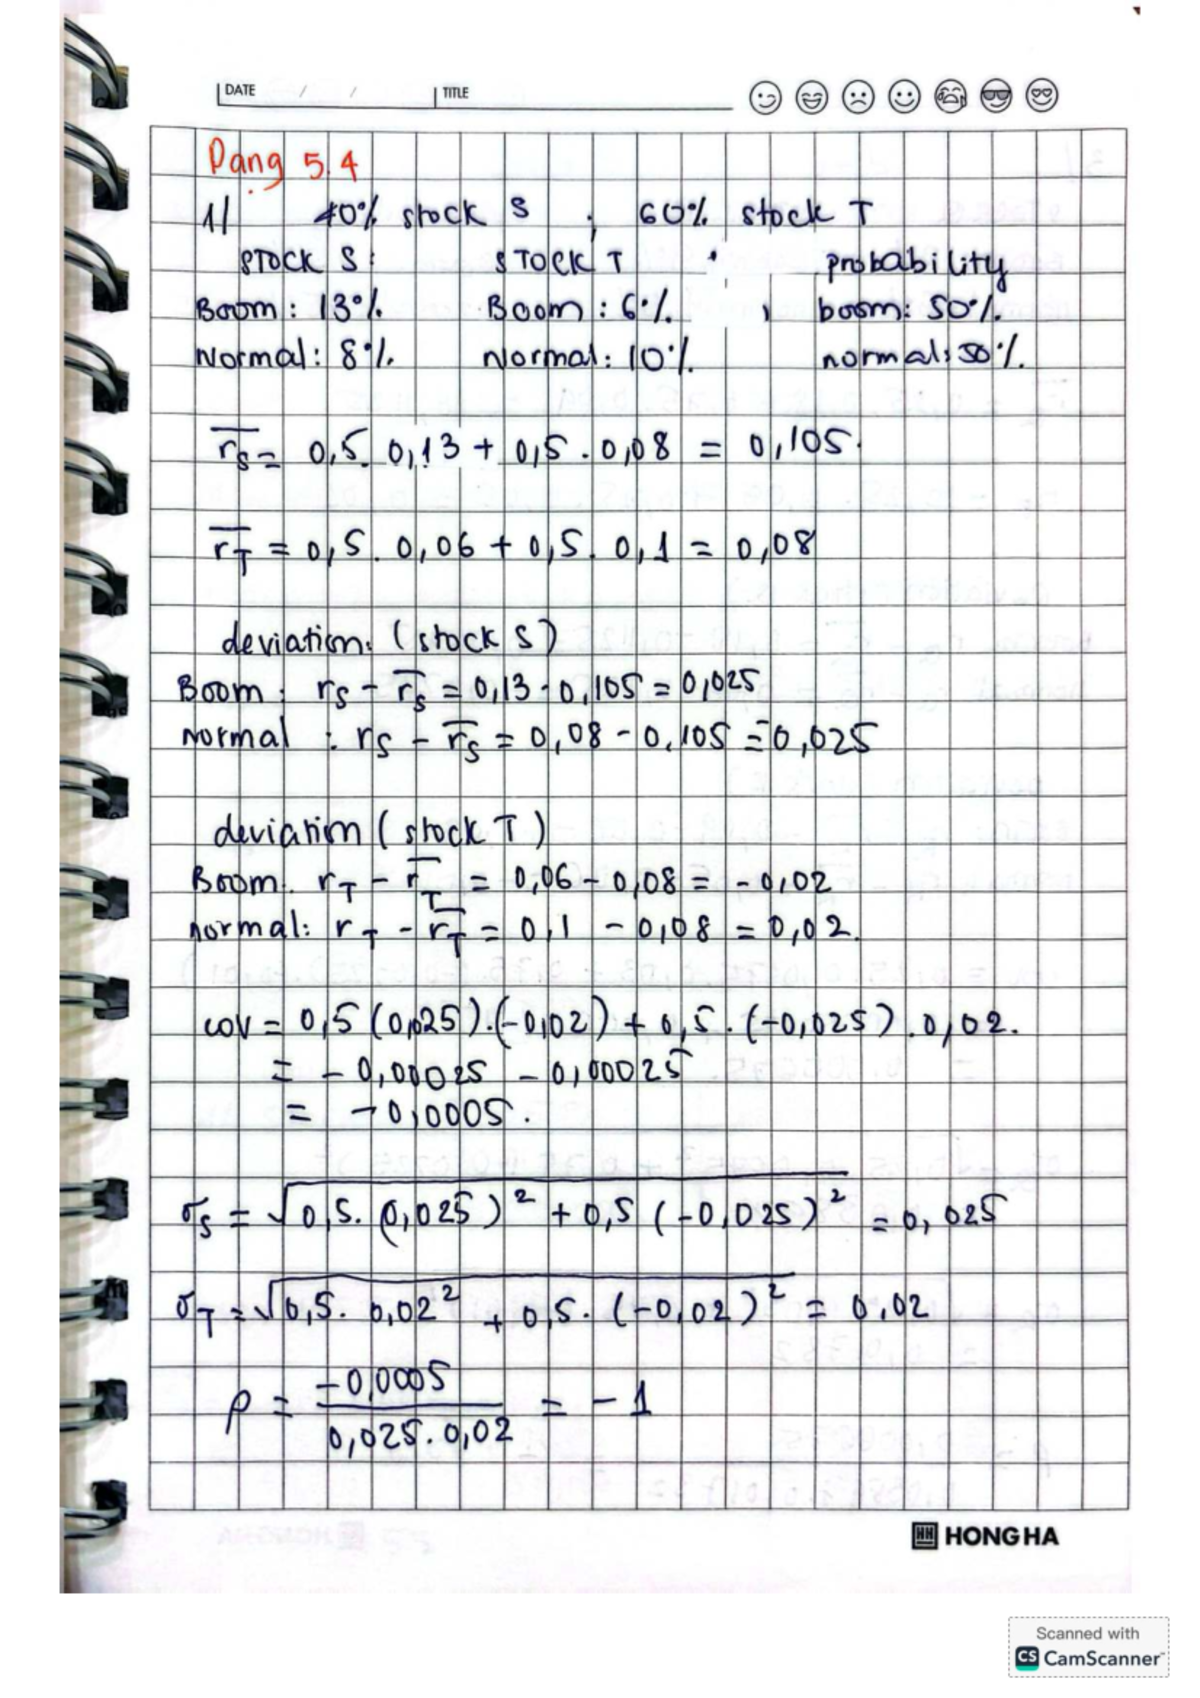 DATE / / TITLE
Dạng 5.4
1/ 40% stock S ; 60% stock T
STOCK S: STOCK T probability
Boom: 13% Boom: 6% boom: 50%
Normal: 8% Normal: 10% normal: 50%
r̅S = 0,5. 0,13 + 0,5 . 0,08 = 0,105.
r̅T = 0,5. 0,06 + 0,5. 0,1 = 0,08
deviation: (stock S)
Boom: rS - r̅S = 0,13 - 0,105 = 0,025
Normal : rS - r̅S = 0,08 - 0,105 = -0,025
deviation (stock T)
Boom: rT - r̅T = 0,06 - 0,08 = -0,02
normal: rT - r̅T = 0,1 - 0,08 = 0,02.
cov = 0,5 (0,025).(-0,02) + 0,5. (-0,025) . 0,02.
= - 0,00025 - 0,00025
= - 0,0005.
σS = √0,5. (0,025)² + 0,5 (-0,025)² = 0,025
σT = √0,5. 0,02² + 0,5. (-0,02)² = 0,02
ρ = -0,0005 / 0,025.0,02 = -1
HH HONG HA
Scanned with
CS CamScanner